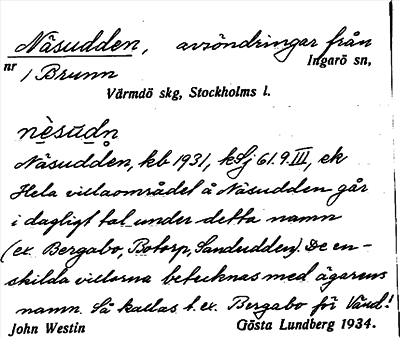 Näsudden, avsöndringar från
nr 1 Brunn Ingarö sn,
Värmdö skg, Stockholms l.
nèsùdn
Näsudden, kb 1931, kslj 61.9.III, ek
Hela villaområdet å Näsudden går
i dagligt tal under detta namn
(ex. Bergabo, Botorp, Sandudden). De en-
skilda villorna betecknas med ägarens
namn. Så kallas t. ex. Bergabo för
John Westin Gösta Lundberg 1934.